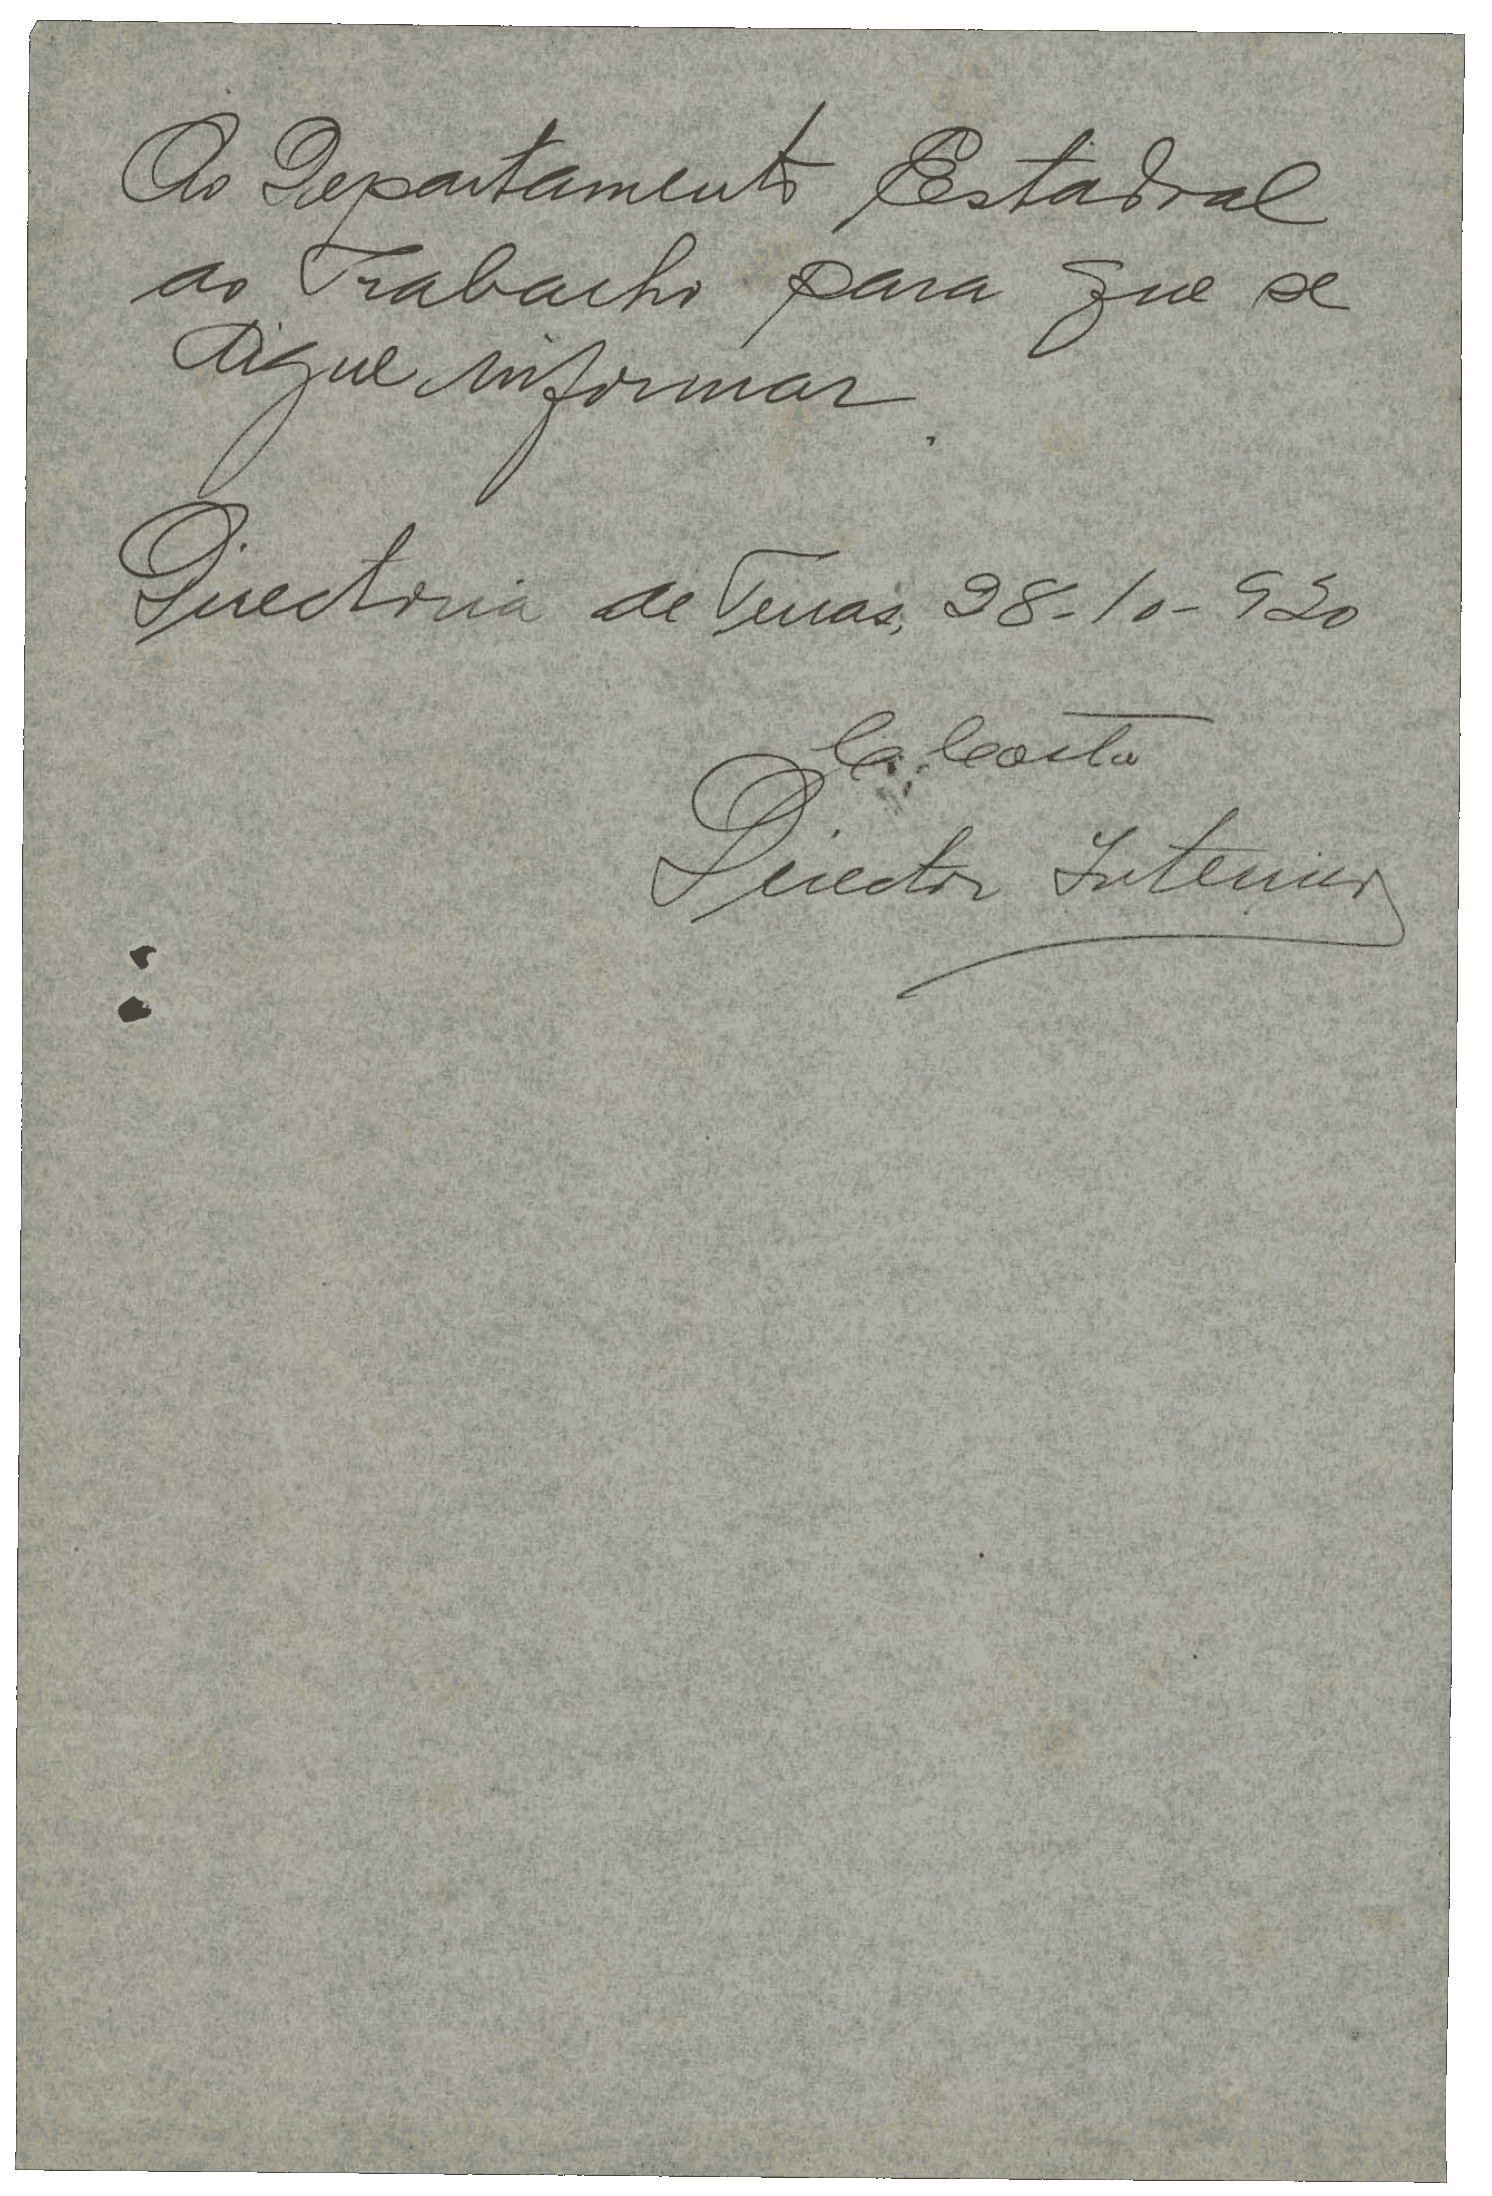 Ao Departamento Estadoal
do Trabalho para que se
digne informar.
Directoria de Terras, 28-10-930
C. Costa
Director Interino